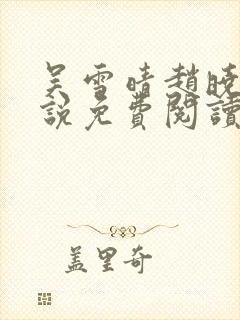 吴雪晴趙曉
說免費閱讀
盖里奇